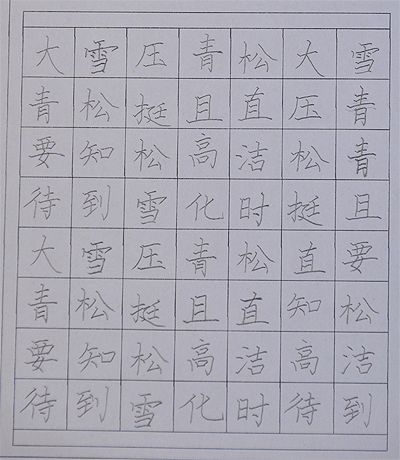 大雪压青松大雪
青松挺且直压青
要知松高洁松青
待到雪化时挺且
大雪压青松直要
青松挺且直知松
要知松高洁高洁
待到雪化时待到